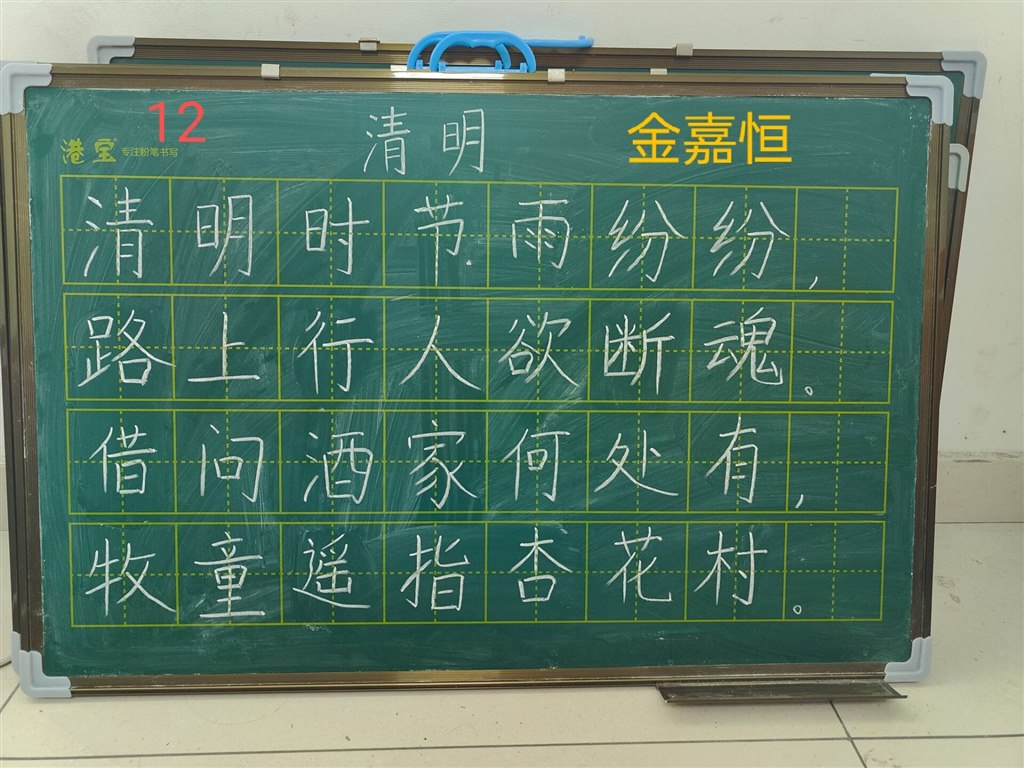 12
清明
金嘉恒
港宝 专注粉笔书写
清明时节雨纷纷，
路上行人欲断魂。
借问酒家何处有，
牧童遥指杏花村。